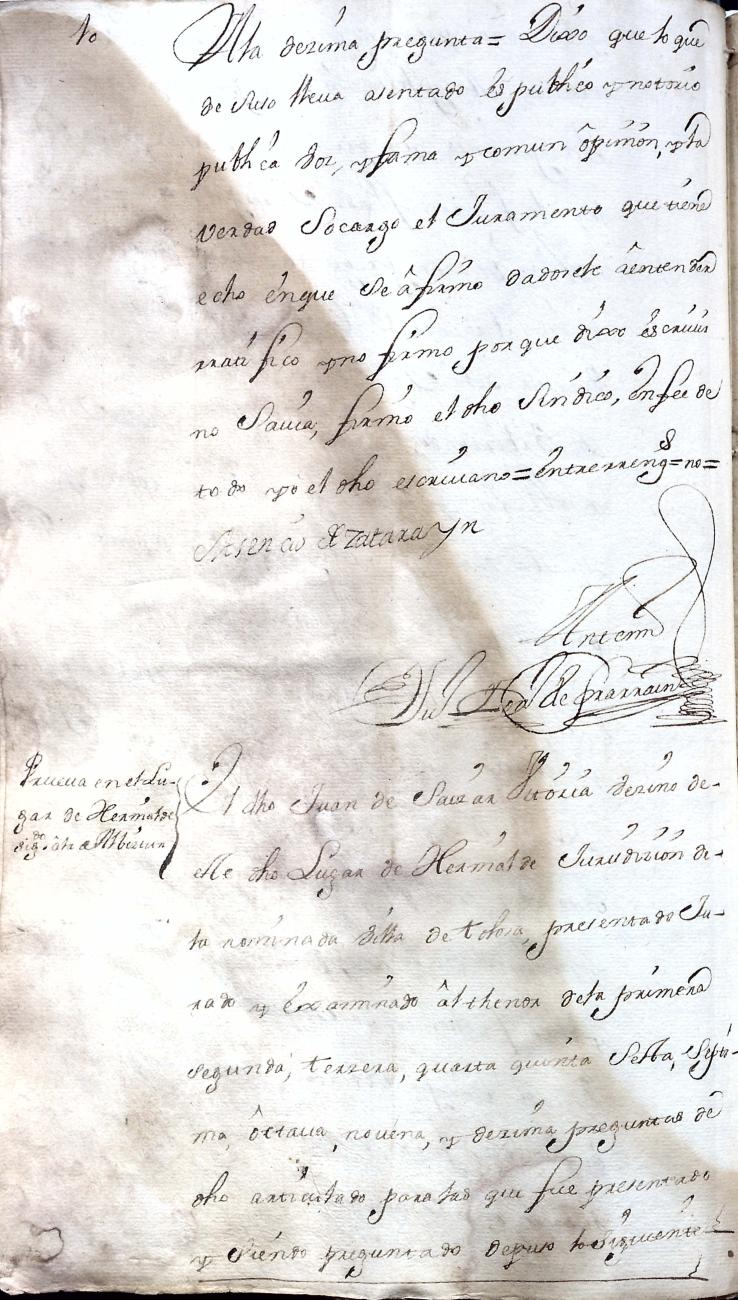 10
A la dezima pregunta= Dixo que lo que
de suso lleva asentado és publico y notorio
publica boz, y fama y comun ôpinion, y la
verdad so cargo el Juramento que tiene
echo én que se â firmo dadosele âentender
rratifico y no firmo porque dixo éscriuir
no Sauia, firmo el dho Sindico, én fee de
todo yo el dho escriuano= éntrerrengs=no=
Asencio de zatarayn
Antemi
Prueua en el Lu-
gar de Hernialde
El dho Juan de Saizar Vitoria vezino de-
este dho Lugar de Hernialde Jurisdizion de-
la nominada villa de tolosa, presentado Ju-
rado y éxaminado âl thenor dela primera
segunda, terzera, quarta quinta Sesta, Septi-
ma, ôctaua, novena, y dezima preguntas de
dho articulado para las que fue presentado
y siendo preguntado depuso lo siguiente